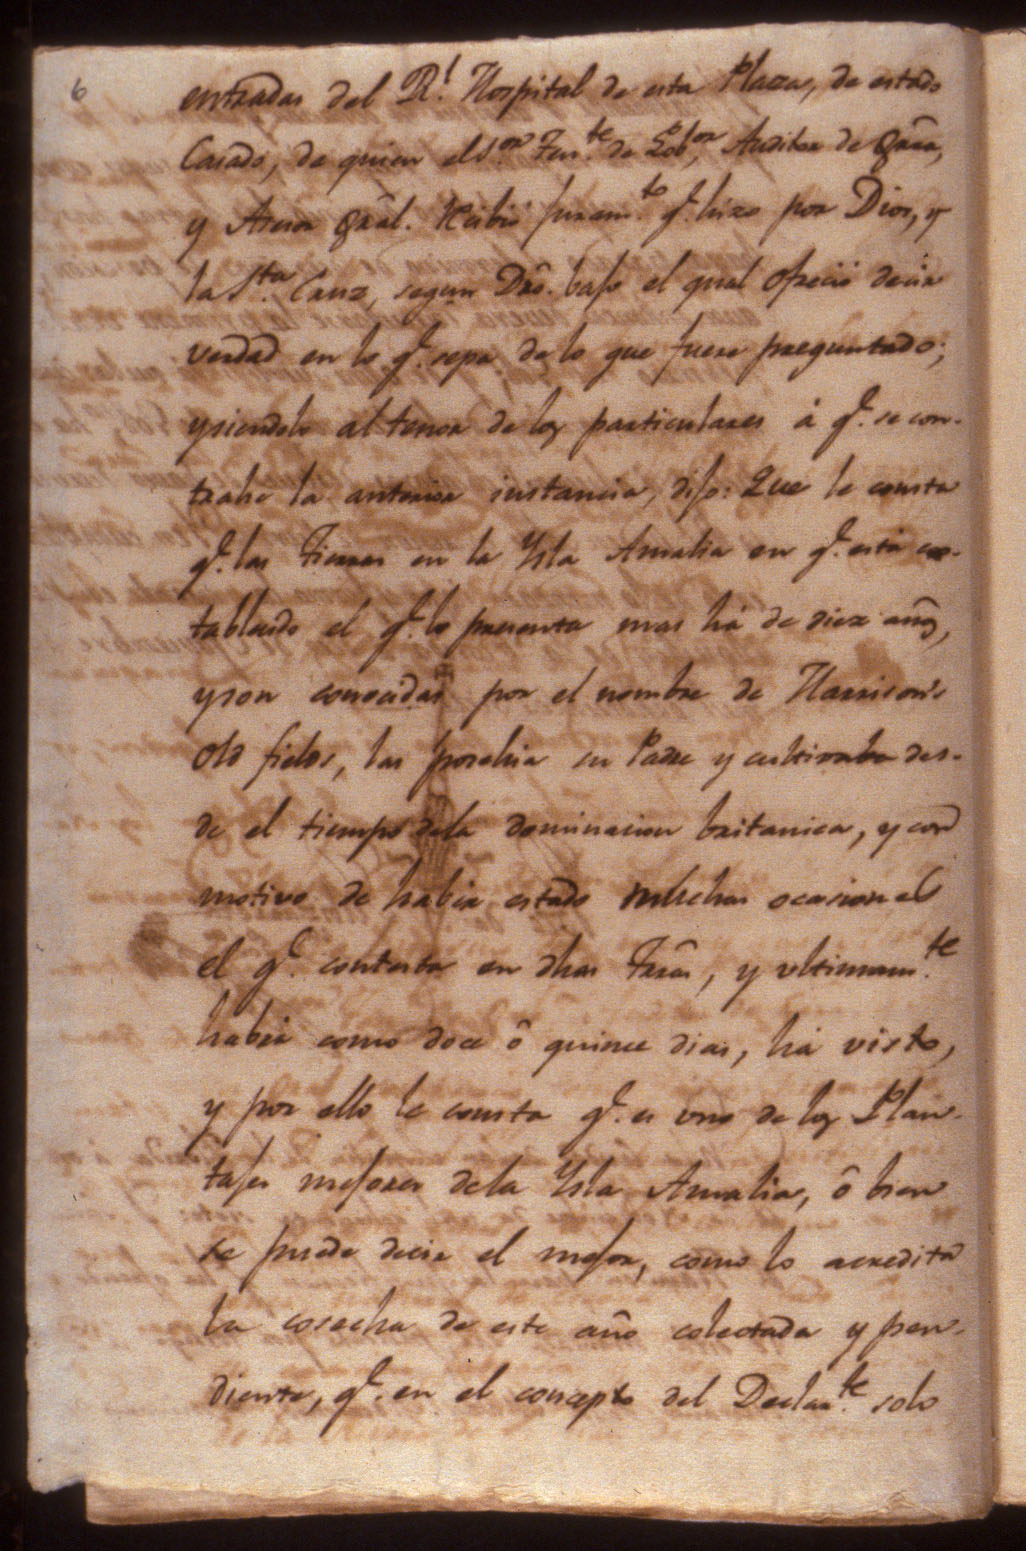 6
entradas del Rl. Hospital de esta Plaza, de estado
Casado, de quien el Sor. Tente. de Gobor, Auditor de Grra,
y Asesor Gral. Recibió juramto. q.e hizo por Dios, y
la Sta. Cruz, segun Dro. bajo el qual ofreció decir
verdad en lo q.e sepa de lo que fuere preguntado;
y siendolo al tenor de los particulares á q.e se con-
trahe la anterior instancia, dijo: Que le consta
q.e las Tierras en la Ysla Amalia en q.e está es-
tablecido el q.e lo presenta mas há de diez años,
y son conocidas por el nombre de Harrison's
Old fields, las posehia su Padre y cultivaba des-
de el tiempo dela dominacion britanica, y con
motivo de haber estado muchas ocasiones
el q.e contesta en dhas Trras, y ultimamte.
habrá como doce ó quince dias, há visto,
y por ello le consta q.e es uno de los Plan-
tajes mejores dela Ysla Amalia, ó bien
se puede decir el mejor, como lo acredita
la cosecha de este año colectada y pen-
diente, q.e en el concepto del Declarte. solo